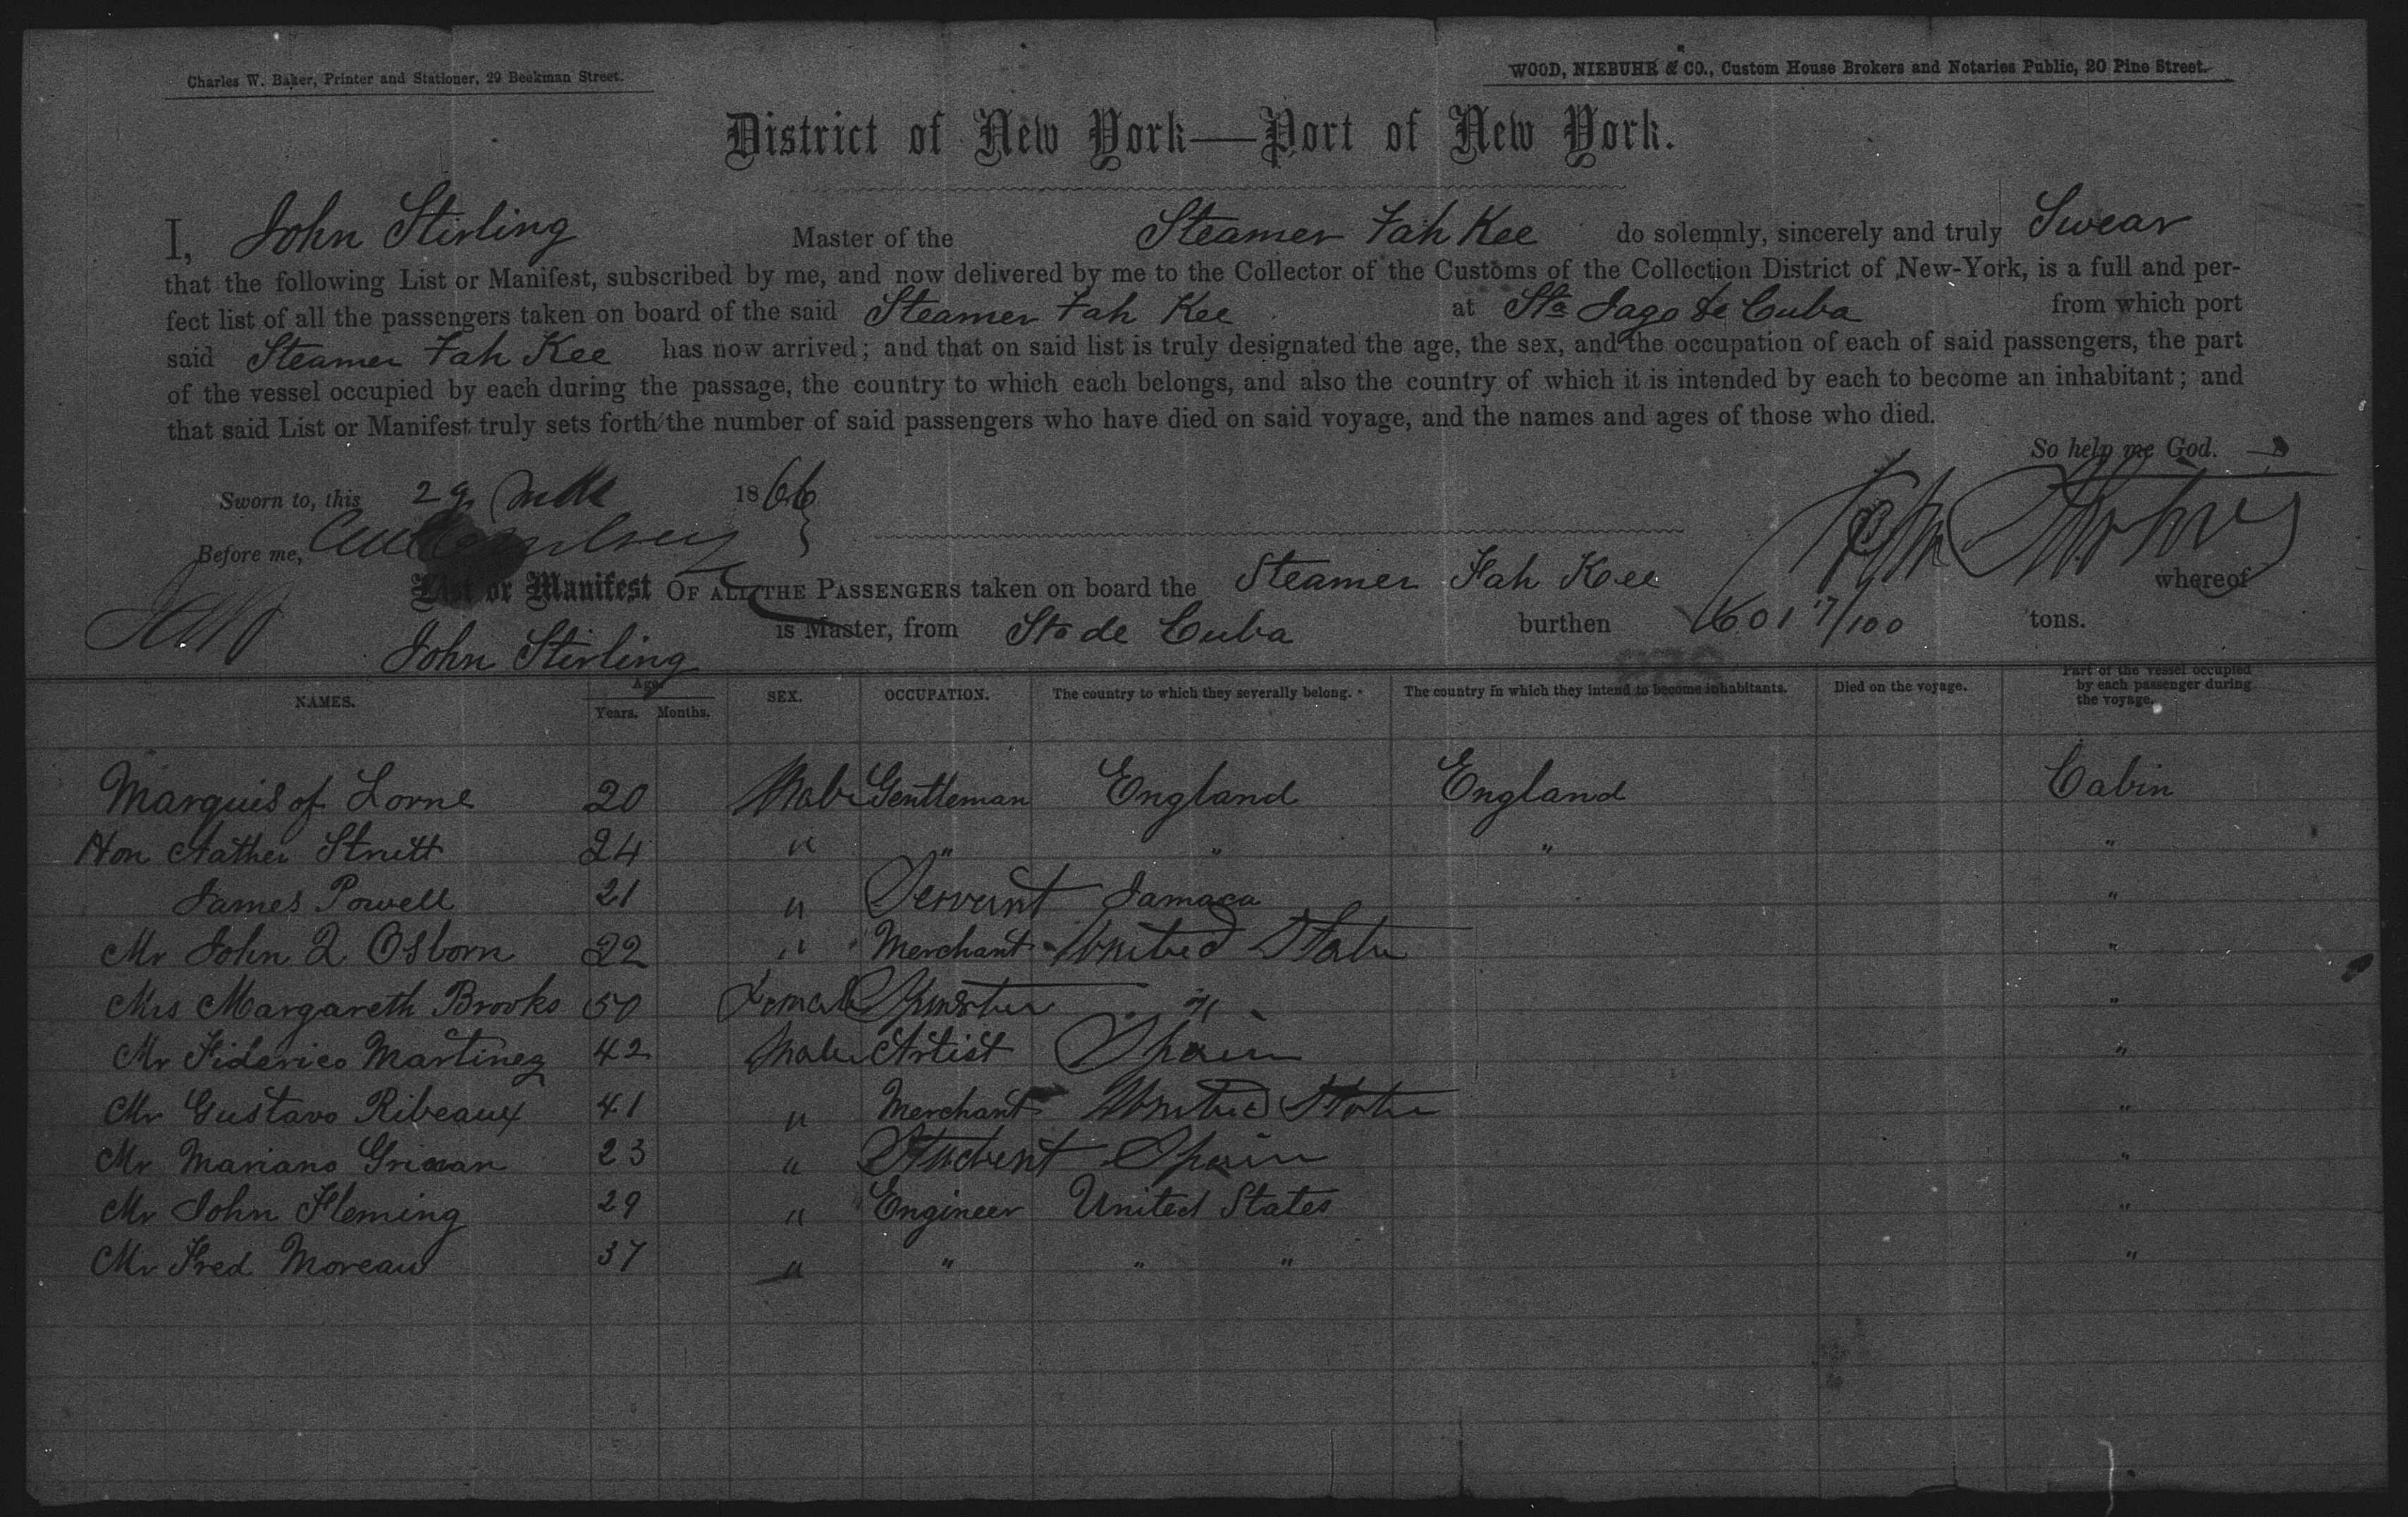 Charles W. Baker, Printer and Stationer, 29 Beekman Street.
WOOD, NIEBUHR & CO., Custom House Brokers and Notaries Public, 20 Pine Street.
District of New York—Port of New York.
I, John Stirling Master of the Steamer Fah Kee do solemnly, sincerely and truly Swear
that the following List or Manifest, subscribed by me, and now delivered by me to the Collector of the Customs of the Collection District of New-York, is a full and per-
fect list of all the passengers taken on board of the said Steamer Fah Kee at Sta Jago de Cuba from which port
said Steamer Fah Kee has now arrived; and that on said list is truly designated the age, the sex, and the occupation of each of said passengers, the part
of the vessel occupied by each during the passage, the country to which each belongs, and also the country of which it is intended by each to become an inhabitant; and
that said List or Manifest truly sets forth the number of said passengers who have died on said voyage, and the names and ages of those who died.
So help me God.
Sworn to, this 29 1866
Before me,
List or Manifest OF ALL THE PASSENGERS taken on board the Steamer Fah Kee whereof
John Stirling is Master, from Sto de Cuba burthen 601 17/100 tons.
NAMES. Age. Years. Months. SEX. OCCUPATION. The country to which they severally belong. The country in which they intend to become inhabitants. Died on the voyage. Part of the vessel occupied by each passenger during the voyage.
Marquis of Lorne 20 Male Gentleman England England Cabin
Hon Strutt 24 " " " " "
James Powell 21 " Servant Jamaca "
Mr John Q Osborn 22 " Merchant United States "
Mrs Margareth Brooks 50 Female Spinster " "
Mr Fiderico Martinez 42 Male Artist Spain "
Mr Gustavo Ribeaux 41 " Merchant United States "
Mr Mariano 23 " Student Spain "
Mr John Fleming 29 " Engineer United States "
Mr Fred Moreau 37 " " " " "